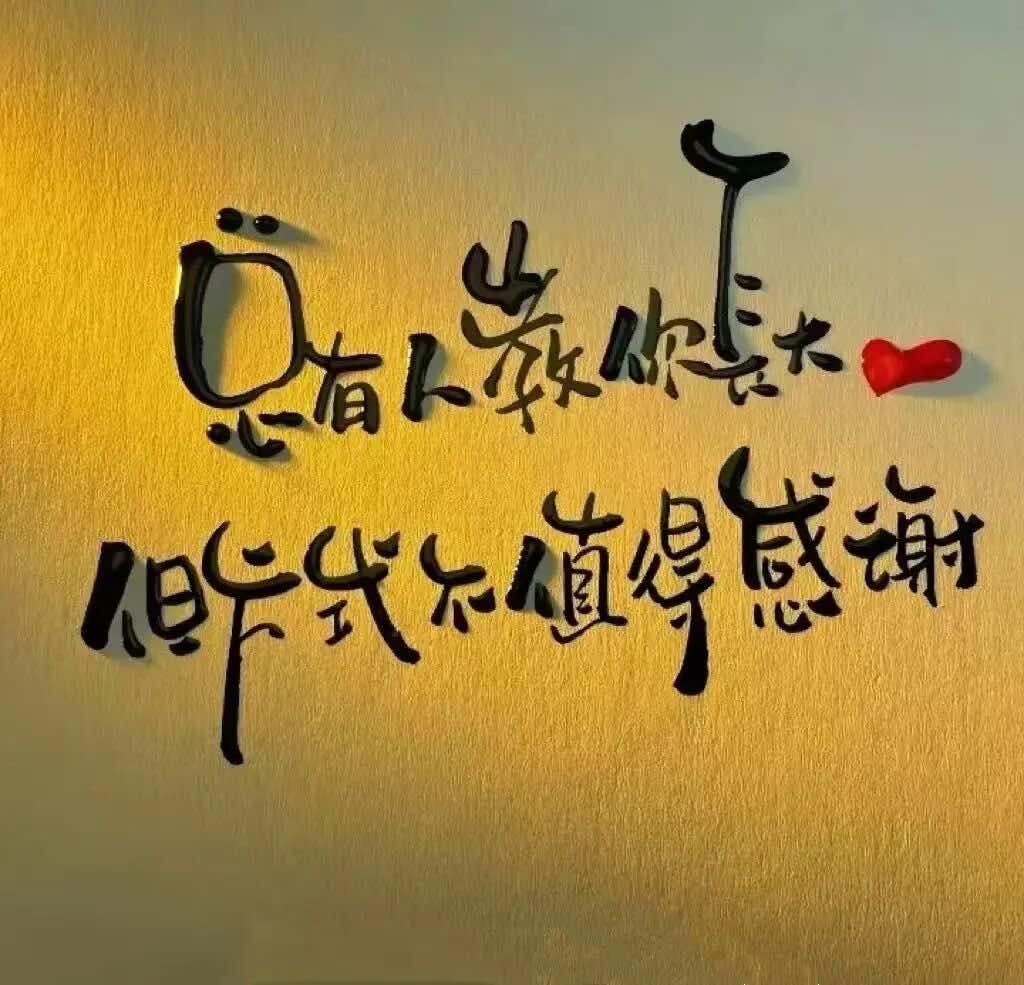 总有人教你長大
但方式不值得感谢